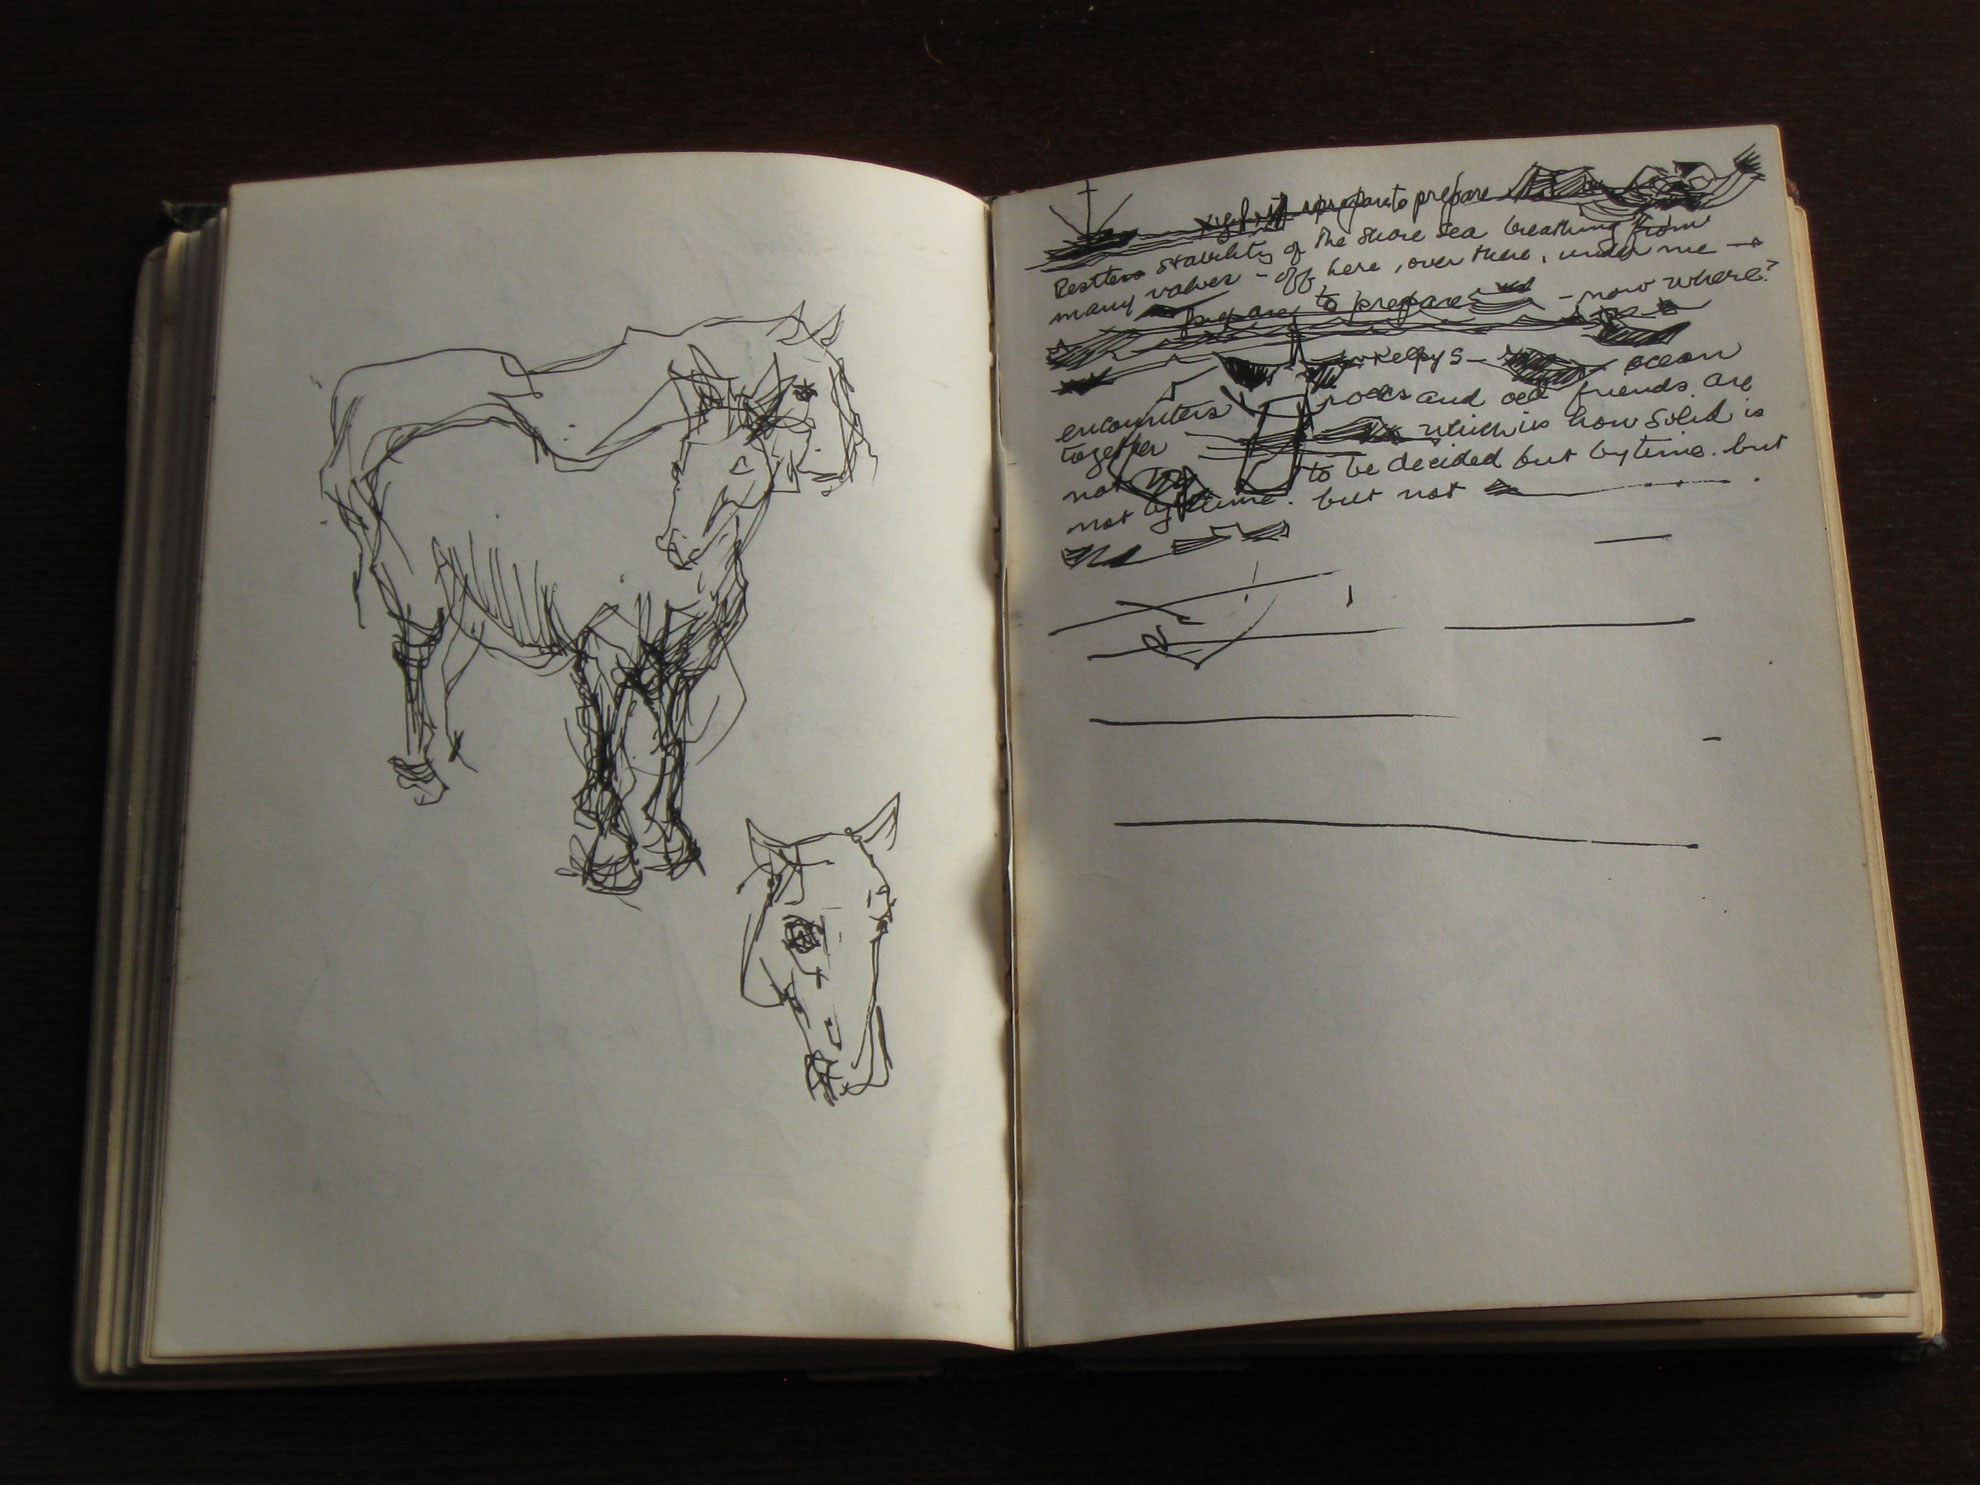 prepare to prepare
Restless stability of the shore sea breathing from
many valves - off, here, over there, under me -
prepare to prepare - now where?
Kelpys - ocean
encounters rocks and old friends are
together which is how solid is
not to be decided but by time. but
not by time. but not